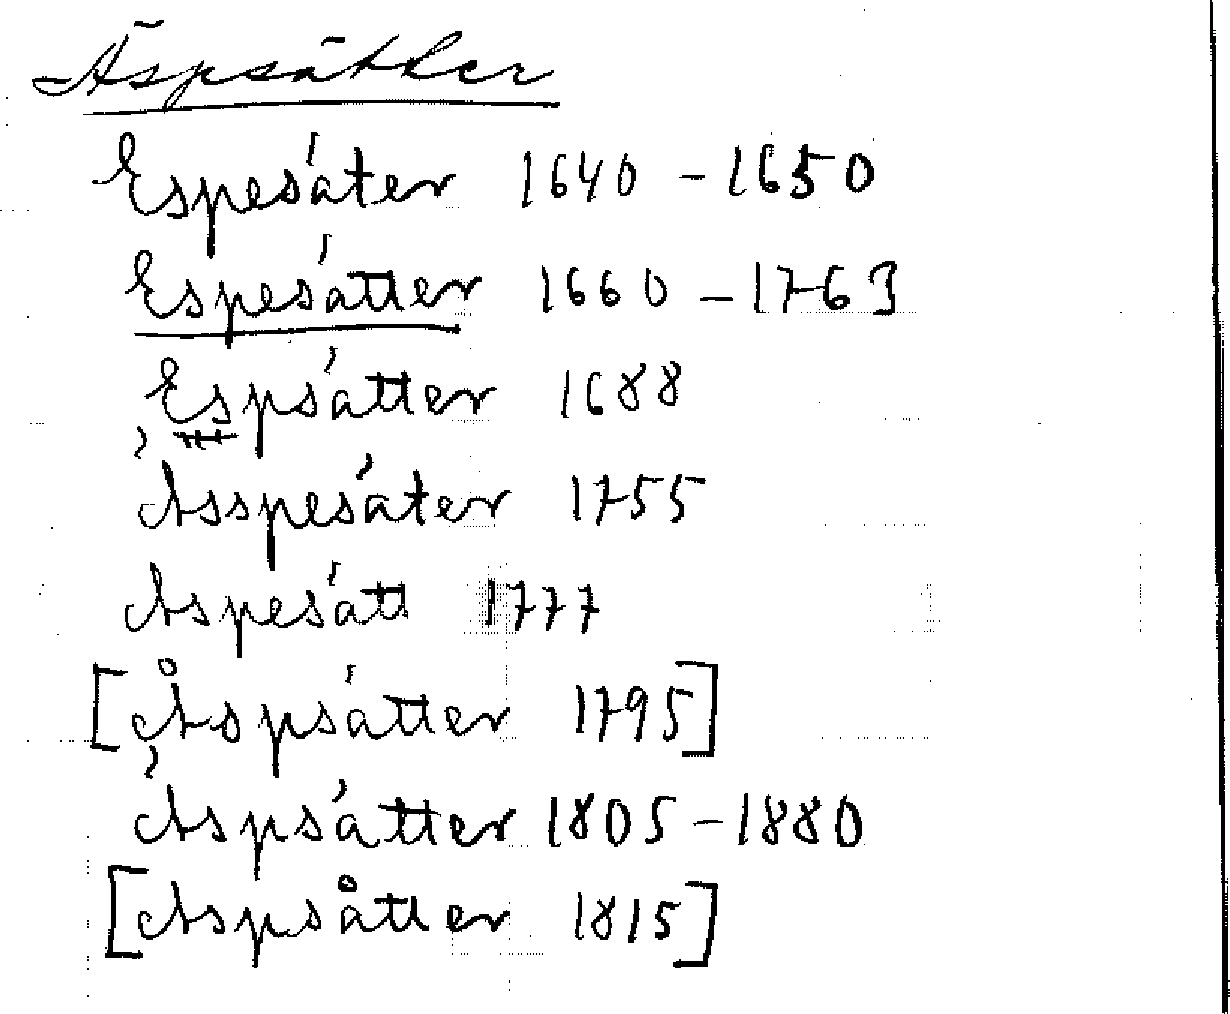 Äspsätter
Espesäter 1640-1650
Espesätter 1660-1763
Espsätter 1688
Ässpesäter 1755
Aspesätt 1777
[Åspsätter 1795]
Äspsätter 1805-1880
[Aspsåtter 1815]